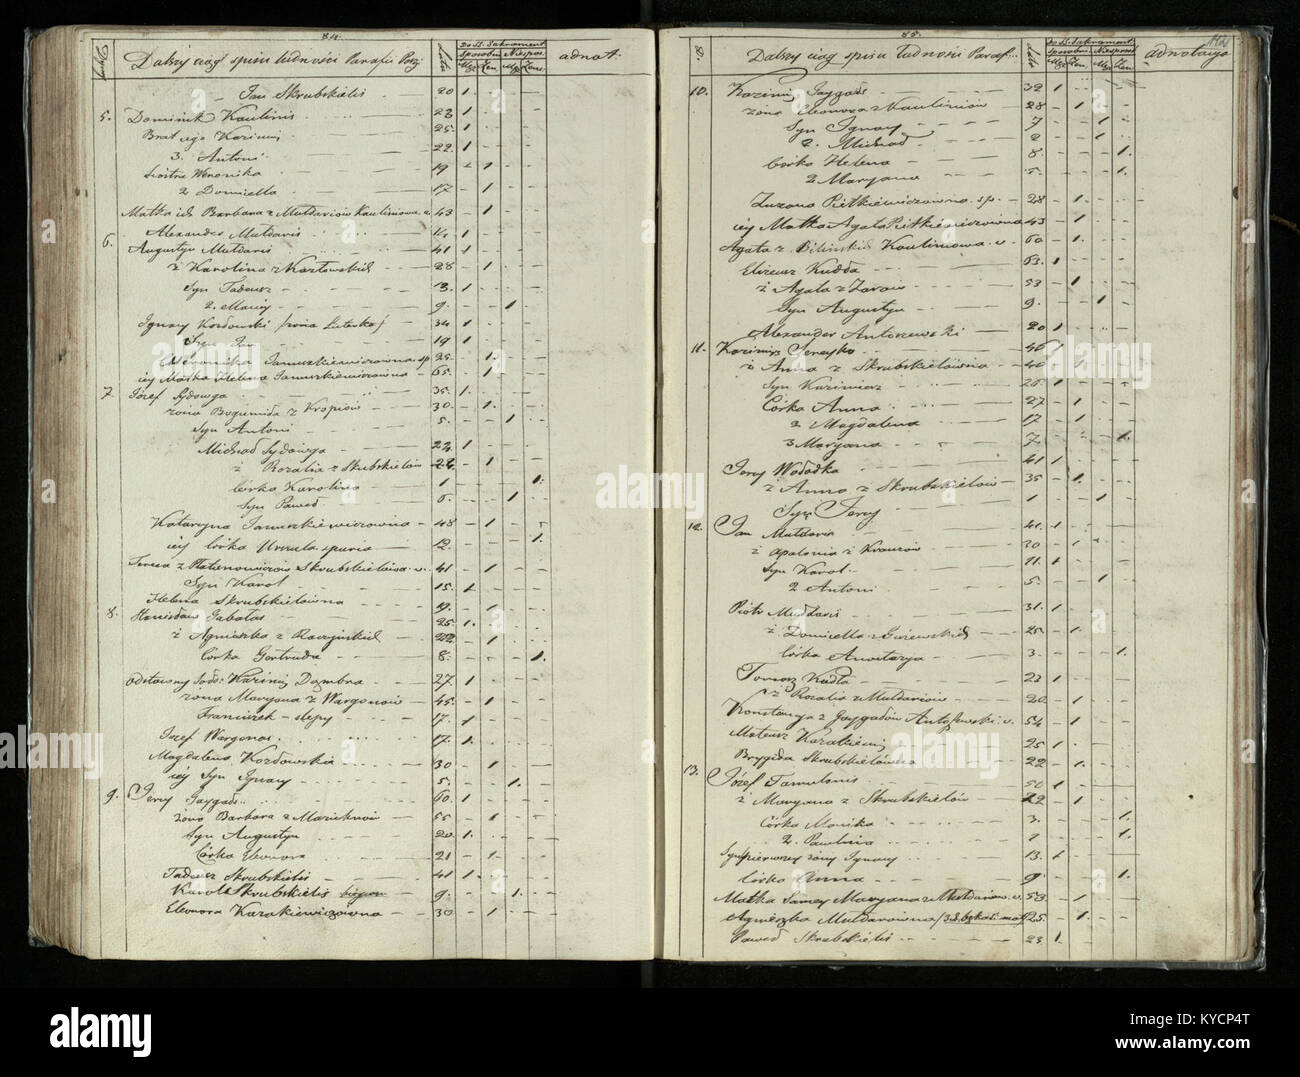 84.
Dalszy ciąg spisu ludności Parafii
Do SS. Sakrament
sposobni Niespos.
adnot.
Jan Skrubskielis 20 1
5. Dominik Kaulinis 23 1
Brat ego Kazimirz 25 1
3. Antoni 22 1
Siostra Weronika 19 1
2 Domicella 17 1
Matka ich Barbara z Muldarów Kaulinowa w. 43 1
Alexander Muldaris 14 1
6. Augustyn Muldaris 41 1
ż Karolina z Kozłowskich 28 1
Syn Tadeusz 13 1
2. Maciej 9 1
Ignacy Kozdowski 34 1
Syn Jan 19 1
Weronika Januszkiewiczowna sp 25 1
iey Matka Helena Januszkiewiczowna 65 1
7. Józef Sydowga 35 1
żona Bogumiła z Kropiów 30 1
Syn Antoni 5 1
Michał Sydowga 24 1
ż Rozalia z Skrubskielów 24 1
Córka Karolina 1 1
Syn Paweł 6 1
Katarzyna Januszkiewiczowna 48 1
iey Córka Urszula spuria 12 1
Teresa z Skrubskielowa w. 41 1
Syn Karol 15 1
Helena Skrubskielówna 19 1
8. Stanisław Gabałas 25 1
ż Agnieszka z Raczyńskich 22 1
Córka Gertruda 8 1
odstawny Sołd: Kazimirz Dąmbna 27 1
żona Maryana z Wargonów 45 1
Franciszek - slepy 17 1
Jozef Wargonas 17 1
Magdalena Kozdowska 30 1
iey Syn Ignacy 5 1
9. Jerzy Gaygals 60 1
żona Barbara z Mariehnów 55 1
Syn Augustyn 20 1
Córka Eleonora 21 1
Tadeusz Skrubskielis 41 1
Karol Skrubskielis 9 1
Eleonora Kazakiewiczowna 30 1
85.
Dalszy ciąg spisu ludności Paraf.
Do SS. Sakrament
sposobni Niesposo
adnotacya
10. Kazimirz Gaygals 32 1
żona Eleonora z Kaulinów 28 1
Syn Ignacy 7 1
2. Michał 2 1
Córka Helena 8 1
2 Maryana 5 1
Zuzana Pietkiewiczowna sp. 28 1
iey Matka Agata Pietkiewiczowna 43 1
Agata z Bilińskich Kaulinowa w. 60 1
Elizeusz Kudła 63 1
ż Agata z Zarów 53 1
Syn Augustyn 9 1
Alexander Antoszewski 20 1
11. Kazimirz Jereyko 46 1
ż Anna z Skrubskielówna 46 1
Syn Kazimierz 26 1
Córka Anna 27 1
2 Magdalena 17 1
3 Maryana 7 1
Jerzy Wołodka 41 1
ż Anna z Skrubskielów 35 1
Syn Jerzy 1 1
12. Jan Muldaris 41 1
ż Apolonia z Krauzów 30 1
Syn Karol 11 1
2 Antoni 5 1
Piotr Muldaris 31 1
ż Domicella z Guzewskich 25 1
Córka Anastazya 3 1
Tomasz Kudła 23 1
ż Rozalia z Muldarów 20 1
Konstancya z Gaygałów Antoszewski w. 54 1
Mateusz Kazakiewicz 25 1
Brygida Skrubskielówna 22 1
13. Józef Tamulonis 50 1
ż Maryana z Skrubskielów 22 1
Córka Monika 3 1
2. Paulina 1 1
Syn pierwszey żony Ignacy 13 1
Córka Anna 9 1
Matka Samey Maryana z Muldarów w. 53 1
Agnieszka Muldarowna 25 1
Paweł Skrubskielis 23 1
alamy
Image ID: KYCP4T
www.alamy.com